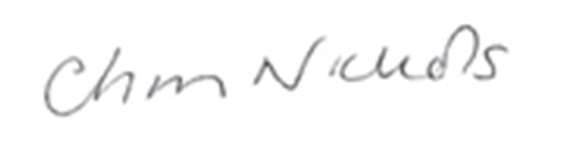 Chris Nichols